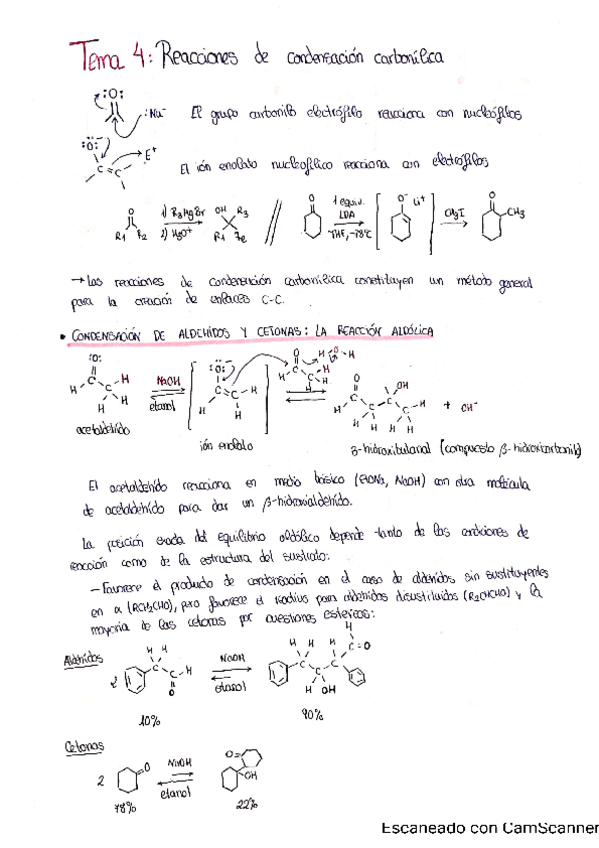 Tema 4: Reacciones de condensación carbonílica
:O:
:Nu⁻
El grupo carbonilo electrófilo reacciona con nucleófilos
:Ö:⁻
E⁺
C=C
El ión enolato nucleofílico reacciona con electrófilos
O
R1 R2
1) R3MgBr
2) H3O⁺
OH R3
R1
O
1 equiv.
LDA
THF, -78°C
O⁻ Li⁺
CH3I
O
CH3
→ Las reacciones de condensación carbonílica constituyen un método general
para la creación de enlaces C-C.
• CONDENSACIÓN DE ALDEHÍDOS Y CETONAS: LA REACCIÓN ALDÓLICA
NaOH
etanol
+ OH⁻
acetaldehído
ión enolato
β-hidroxibutanal (compuesto β-hidroxicarbonilo)
El acetaldehído reacciona en medio básico (EtONa, NaOH) con otra molécula
de acetaldehído para dar un β-hidroxialdehído.
La posición exacta del equilibrio aldólico depende tanto de las condiciones de
reacción como de la estructura del sustrato:
- Favorece el producto de condensación en el caso de aldehídos sin sustituyentes
en α (RCH2CHO), pero favorece el reactivo para aldehídos disustituidos (R2CHCHO) y la
mayoría de las cetonas por cuestiones estéricas:
Aldehídos
2
NaOH
etanol
H OH
10%
90%
Cetonas
2
O
NaOH
etanol
O
OH
78%
22%
Escaneado con CamScanner